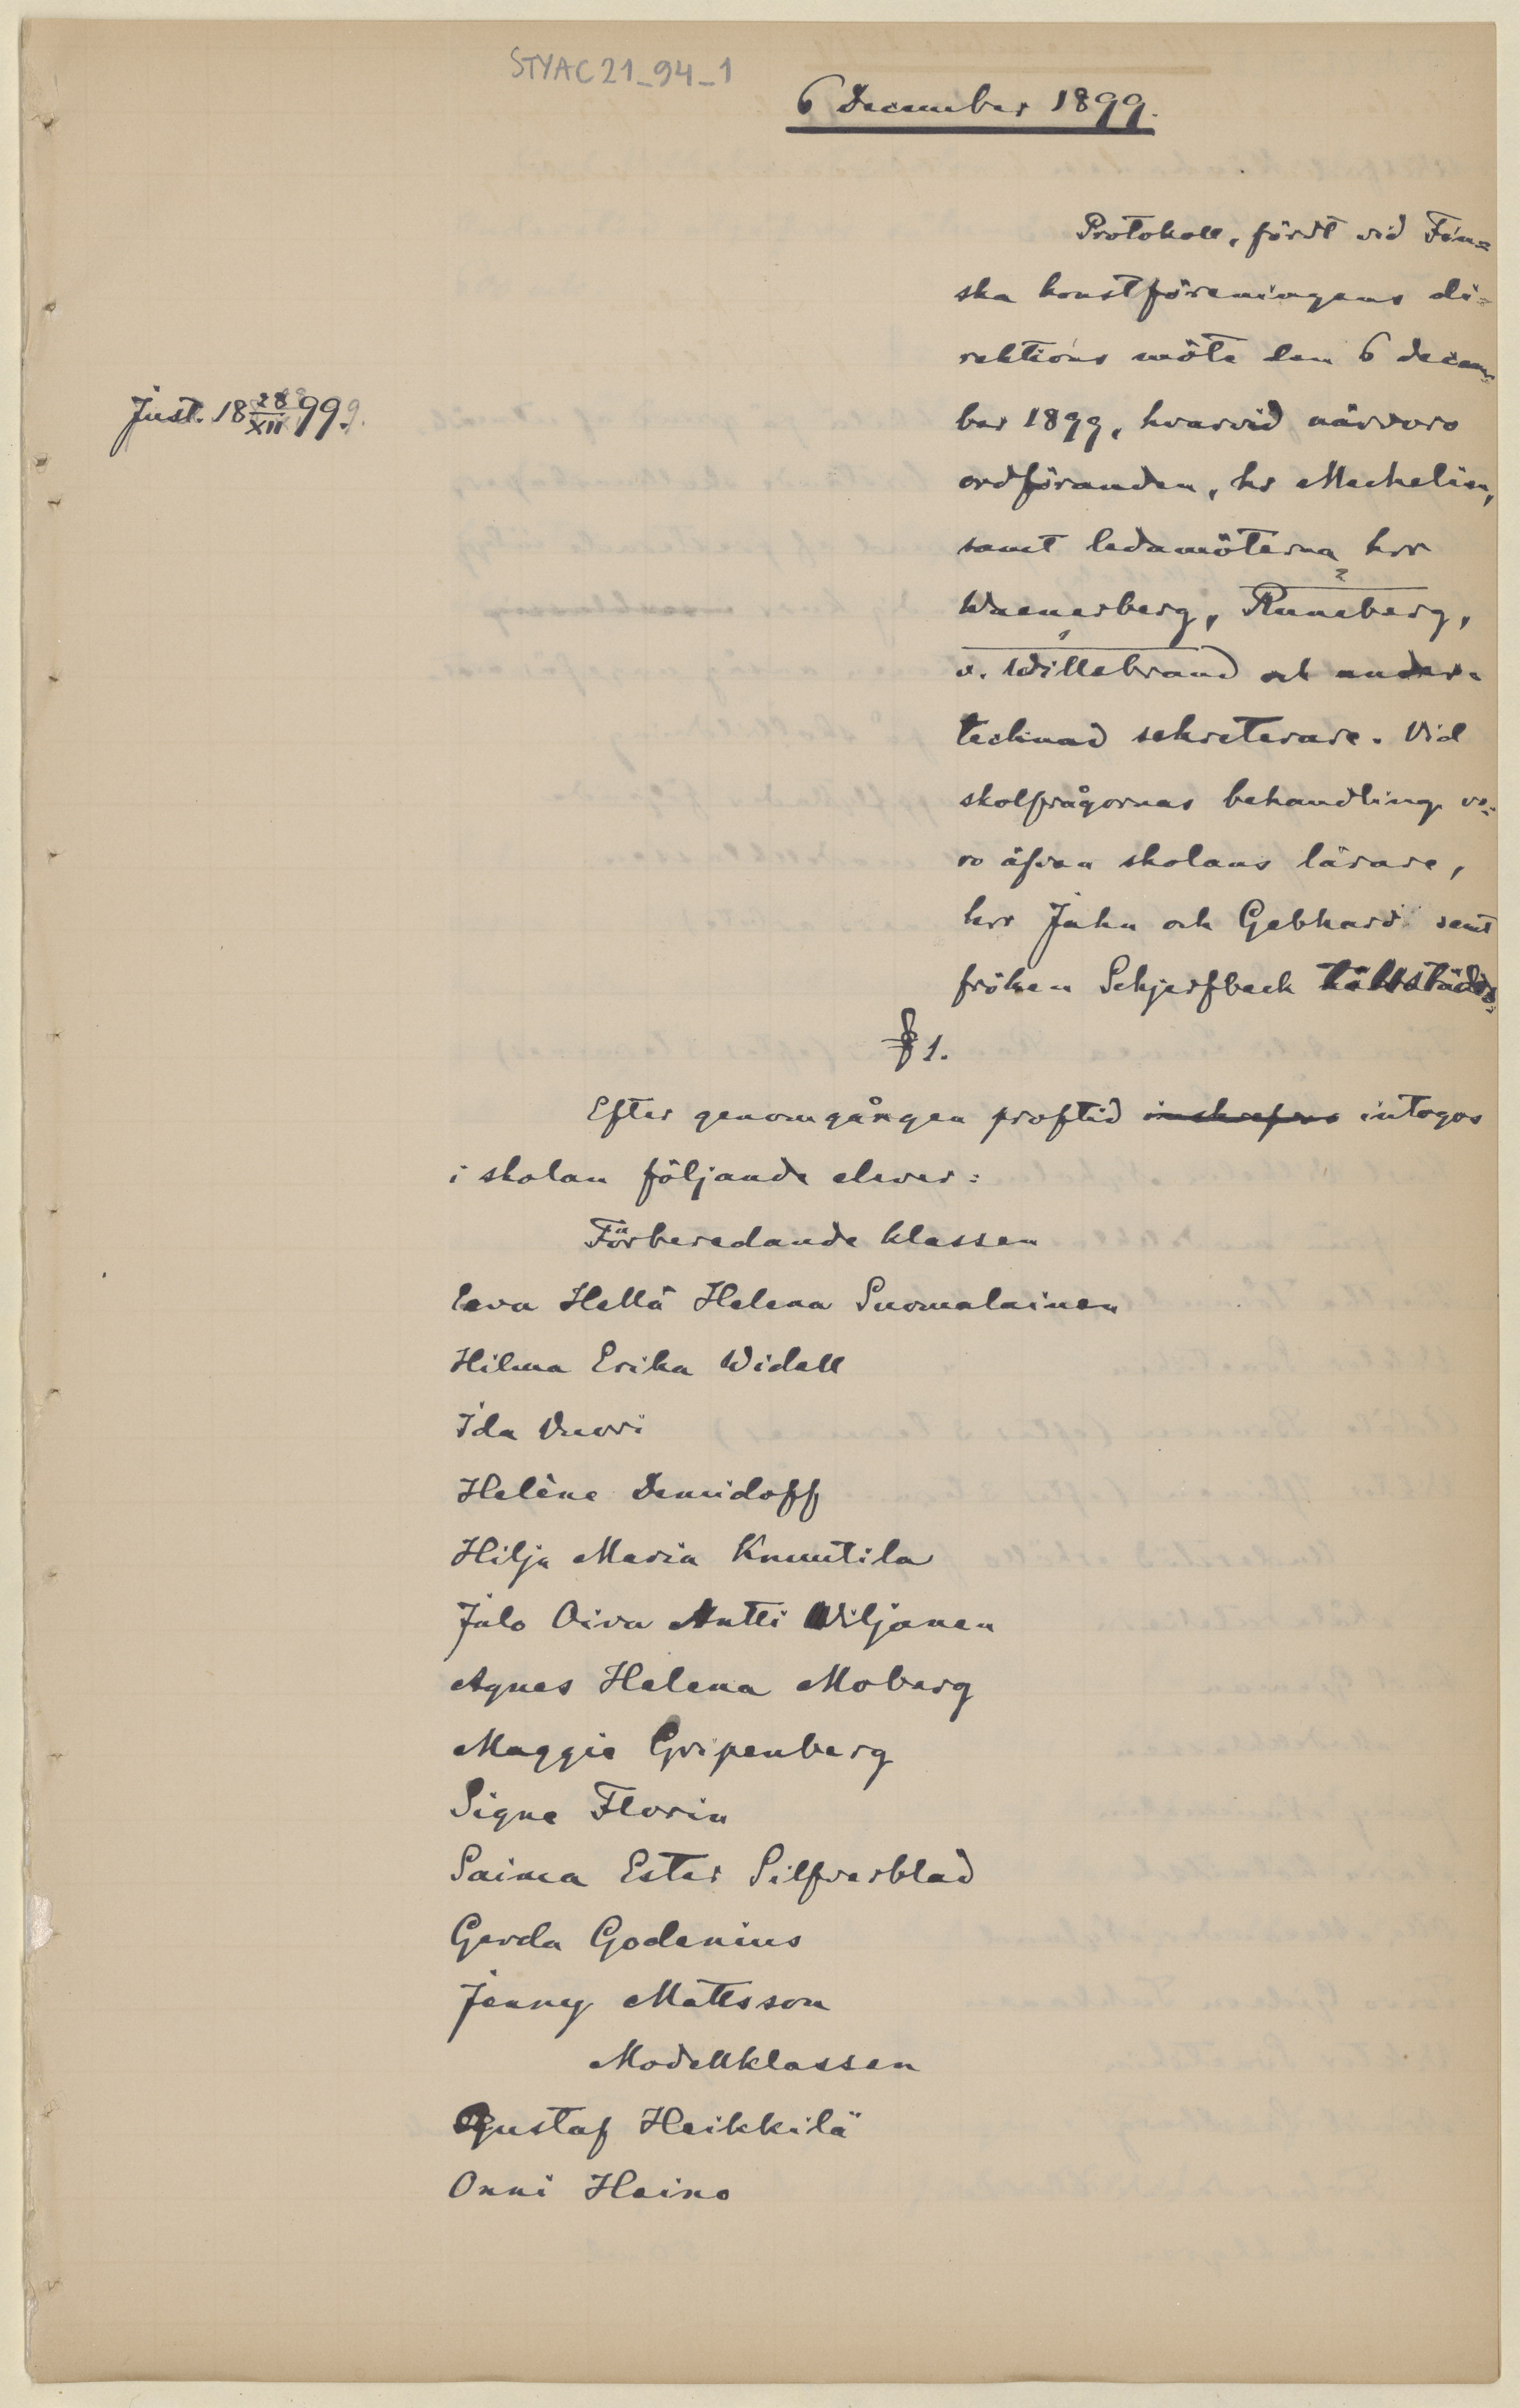 STYAC21_94_1
6 December 1899.
Protokoll, fördt vid Fin=
ska konstföreningens di=
rektions möte den 6 decem=
ber 1899, hvarvid närvoro
Just. 18 28/XII 99.
ordföranden, hr Mechelin,
samt ledamöterna hrr
2
Waenerberg, Runeberg,
1
v. Willebrand och under=
tecknad sekreterare. Vid
skolfrågornas behandling vo=
ro äfven skolans lärare,
hrr Jahn och Gebhard samt
fröken Schjerfbeck tillstädes.
§ 1.
Efter genomgången proftid inskrefvos intogos
i skolan följande elever:
Förberedande klassen
Eeva Hellä Helena Suomalainen
Hilma Erika Widell
Ida Vuori
Helène Demidoff
Hilja Maria Knuutila
Jalo Oiva Antti Wiljanen
Agnes Helena Moberg
Maggie Gripenberg
Signe Florin
Saima Ester Silfverblad
Gerda Godenius
Jenny Mattsson
Modellklassen
Gustaf Heikkilä
Onni Heino